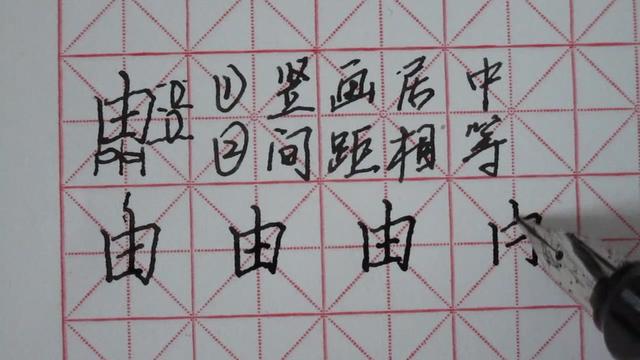 由 ①竖画居中
②间距相等
由 由 由